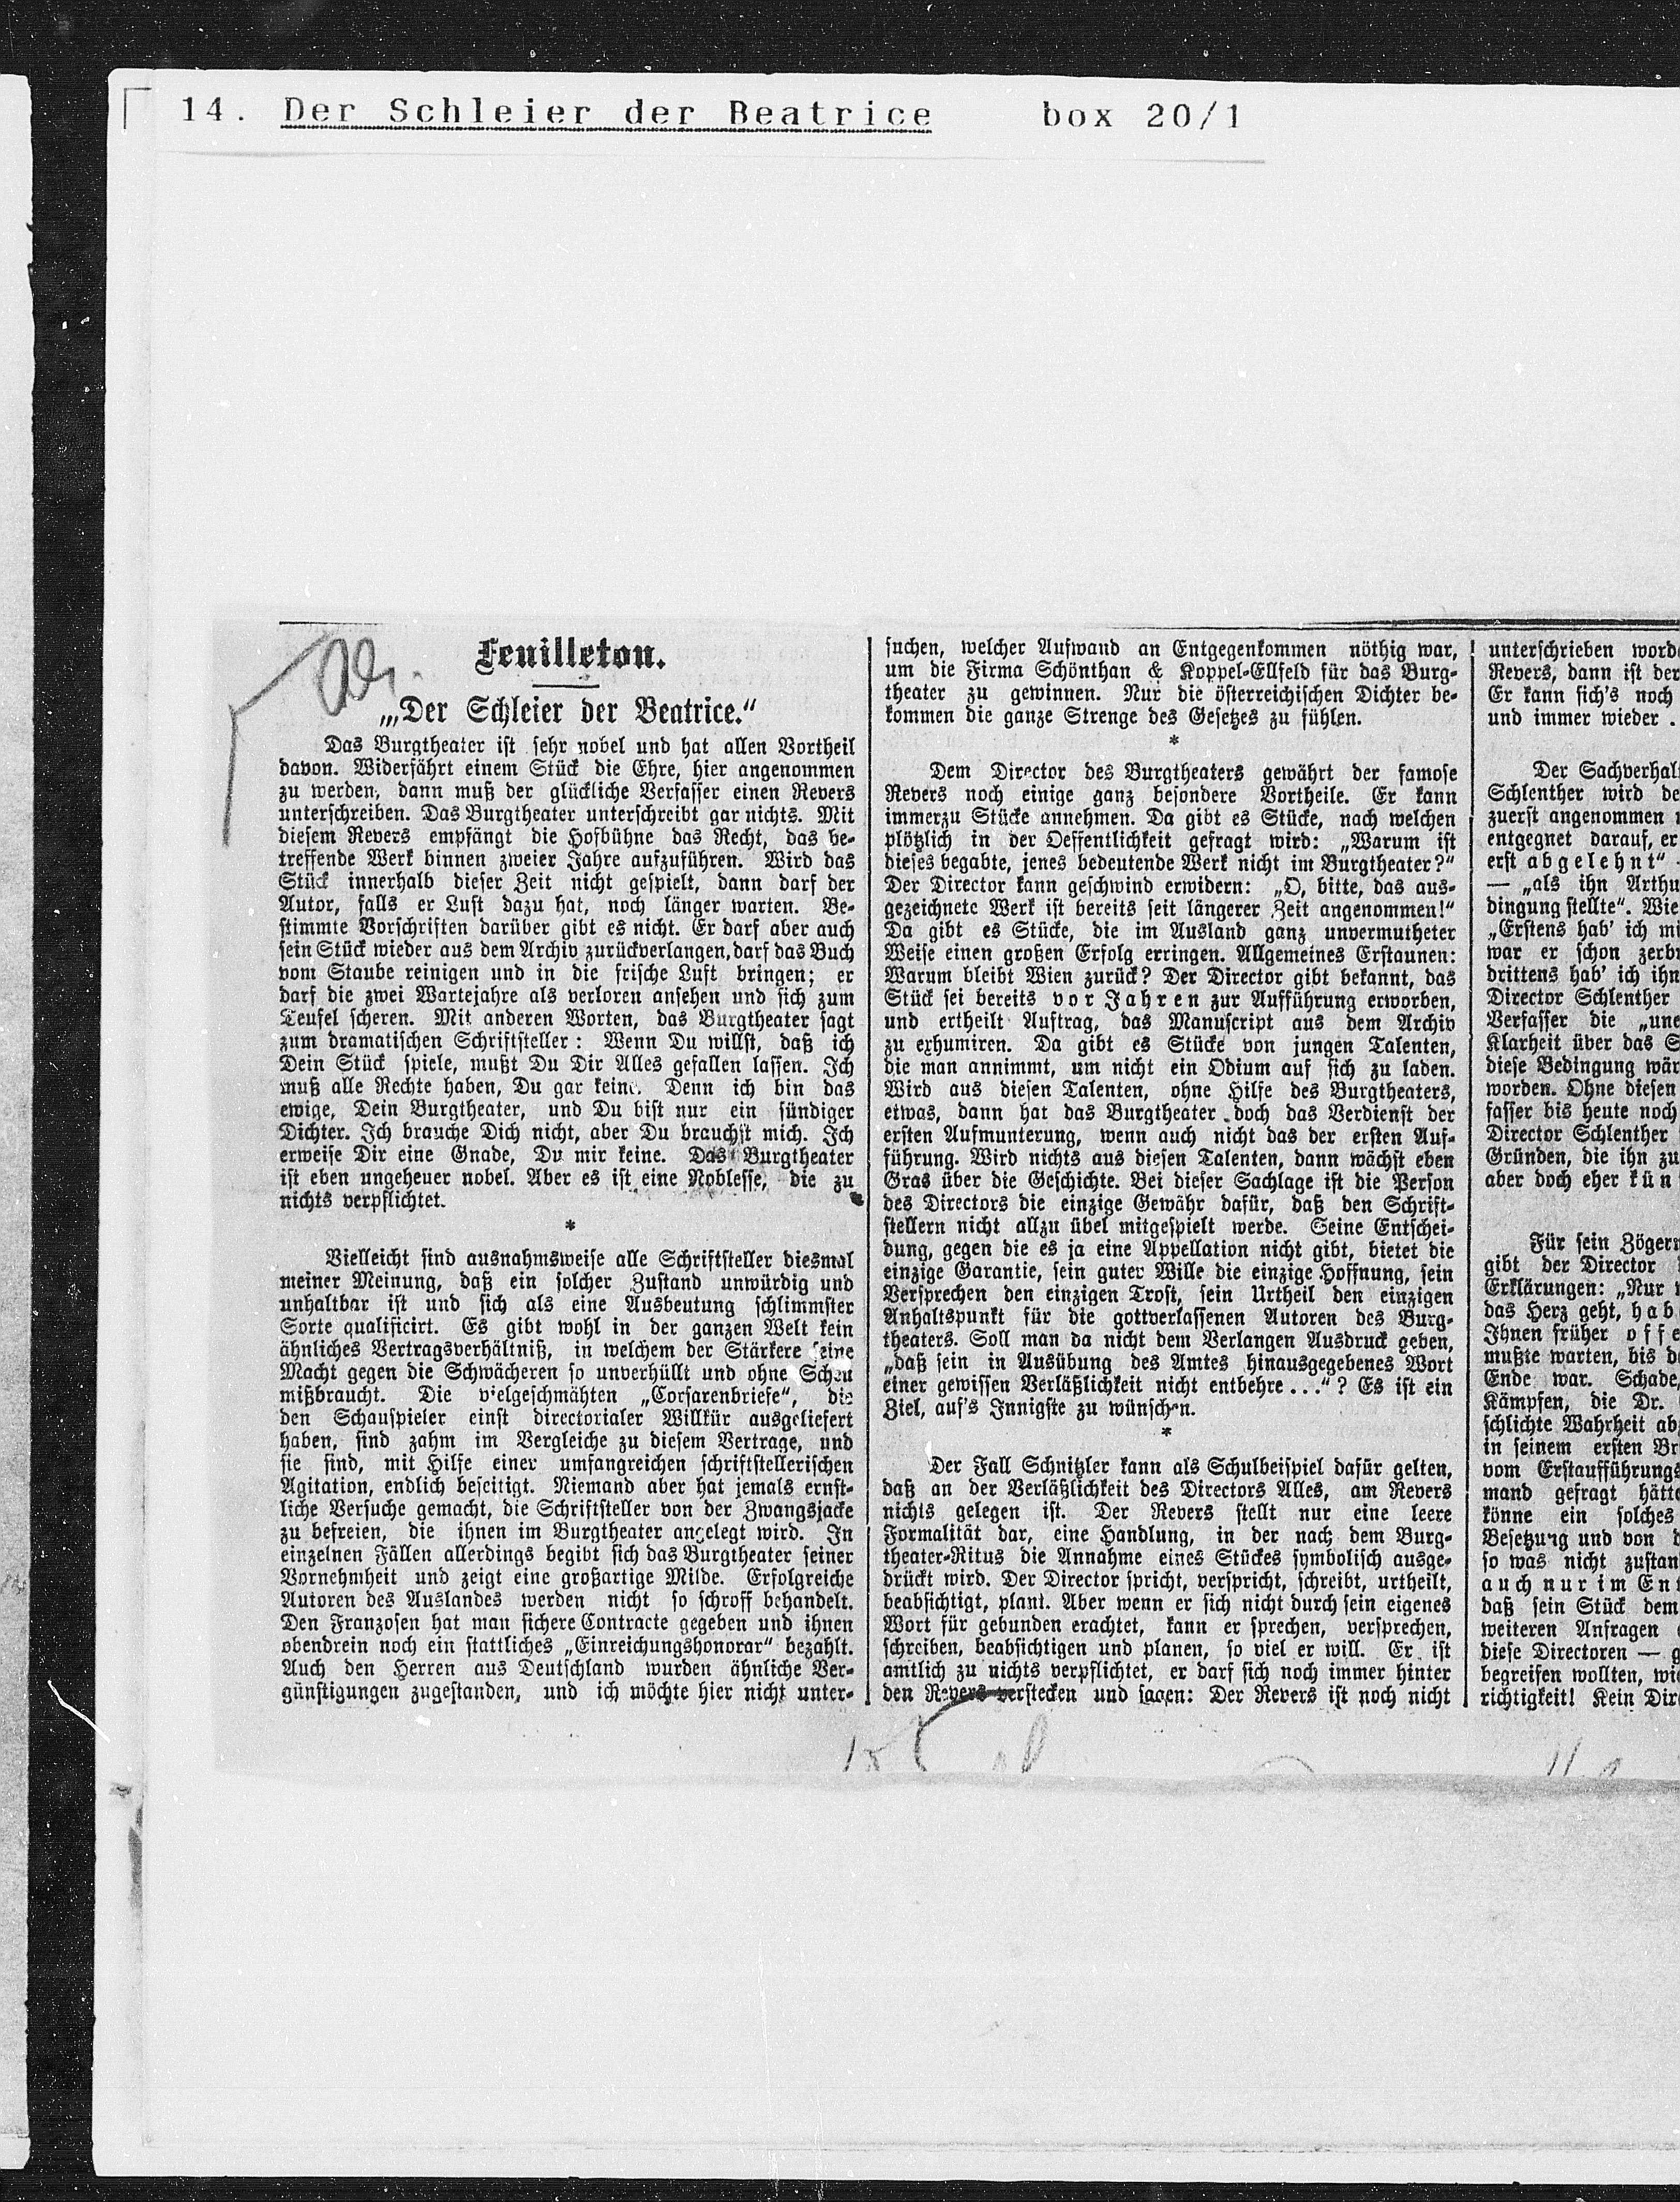 14. Der Schleier der Beatrice box 20/1
Feuilleton.
„„Der Schleier der Beatrice.“
Das Burgtheater ist sehr nobel und hat allen Vortheil
davon. Widerfährt einem Stück die Ehre, hier angenommen
zu werden, dann muß der glückliche Verfasser einen Revers
unterschreiben. Das Burgtheater unterschreibt gar nichts. Mit
diesem Revers empfängt die Hofbühne das Recht, das be-
treffende Werk binnen zweier Jahre aufzuführen. Wird das
Stück innerhalb dieser Zeit nicht gespielt, dann darf der
Autor, falls er Lust dazu hat, noch länger warten. Be-
stimmte Vorschriften darüber gibt es nicht. Er darf aber auch
sein Stück wieder aus dem Archiv zurückverlangen, darf das Buch
vom Staube reinigen und in die frische Luft bringen; er
darf die zwei Wartejahre als verloren ansehen und sich zum
Teufel scheren. Mit anderen Worten, das Burgtheater sagt
zum dramatischen Schriftsteller: Wenn Du willst, daß ich
Dein Stück spiele, mußt Du Dir Alles gefallen lassen. Ich
muß alle Rechte haben, Du gar keine. Denn ich bin das
ewige, Dein Burgtheater, und Du bist nur ein sündiger
Dichter. Ich brauche Dich nicht, aber Du brauchst mich. Ich
erweise Dir eine Gnade, Du mir keine. Das Burgtheater
ist eben ungeheuer nobel. Aber es ist eine Noblesse, die zu
nichts verpflichtet.
*
Vielleicht sind ausnahmsweise alle Schriftsteller diesmal
meiner Meinung, daß ein solcher Zustand unwürdig und
unhaltbar ist und sich als eine Ausbeutung schlimmster
Sorte qualificirt. Es gibt wohl in der ganzen Welt kein
ähnliches Vertragsverhältniß, in welchem der Stärkere seine
Macht gegen die Schwächeren so unverhüllt und ohne Scheu
mißbraucht. Die vielgeschmähten „Corsarenbriefe“, die
den Schauspieler einst directorialer Willkür ausgeliefert
haben, sind zahm im Vergleiche zu diesem Vertrage, und
sie sind, mit Hilfe einer umfangreichen schriftstellerischen
Agitation, endlich beseitigt. Niemand aber hat jemals ernst-
liche Versuche gemacht, die Schriftsteller von der Zwangsjacke
zu befreien, die ihnen im Burgtheater angelegt wird. In
einzelnen Fällen allerdings begibt sich das Burgtheater seiner
Vornehmheit und zeigt eine großartige Milde. Erfolgreiche
Autoren des Auslandes werden nicht so schroff behandelt.
Den Franzosen hat man sichere Contracte gegeben und ihnen
obendrein noch ein stattliches „Einreichungshonorar“ bezahlt.
Auch den Herren aus Deutschland wurden ähnliche Ver-
günstigungen zugestanden, und ich möchte hier nicht unter-
suchen, welcher Aufwand an Entgegenkommen nöthig war,
um die Firma Schönthan & Koppel-Ellfeld für das Burg-
theater zu gewinnen. Nur die österreichischen Dichter be-
kommen die ganze Strenge des Gesetzes zu fühlen.
*
Dem Director des Burgtheaters gewährt der famose
Revers noch einige ganz besondere Vortheile. Er kann
immerzu Stücke annehmen. Da gibt es Stücke, nach welchen
plötzlich in der Oeffentlichkeit gefragt wird: „Warum ist
dieses begabte, jenes bedeutende Werk nicht im Burgtheater?“
Der Director kann geschwind erwidern: „O, bitte, das aus-
gezeichnete Werk ist bereits seit längerer Zeit angenommen!“
Da gibt es Stücke, die im Ausland ganz unvermutheter
Weise einen großen Erfolg erringen. Allgemeines Erstaunen:
Warum bleibt Wien zurück? Der Director gibt bekannt, das
Stück sei bereits vor Jahren zur Aufführung erworben,
und ertheilt Auftrag, das Manuscript aus dem Archiv
zu exhumiren. Da gibt es Stücke von jungen Talenten,
die man annimmt, um nicht ein Odium auf sich zu laden.
Wird aus diesen Talenten, ohne Hilfe des Burgtheaters,
etwas, dann hat das Burgtheater doch das Verdienst der
ersten Aufmunterung, wenn auch nicht das der ersten Auf-
führung. Wird nichts aus diesen Talenten, dann wächst eben
Gras über die Geschichte. Bei dieser Sachlage ist die Person
des Directors die einzige Gewähr dafür, daß den Schrift-
stellern nicht allzu übel mitgespielt werde. Seine Entschei-
dung, gegen die es ja eine Appellation nicht gibt, bietet die
einzige Garantie, sein guter Wille die einzige Hoffnung, sein
Versprechen den einzigen Trost, sein Urtheil den einzigen
Anhaltspunkt für die gottverlassenen Autoren des Burg-
theaters. Soll man da nicht dem Verlangen Ausdruck geben,
„daß sein in Ausübung des Amtes hinausgegebenes Wort
einer gewissen Verläßlichkeit nicht entbehre...“? Es ist ein
Ziel, auf's Innigste zu wünschen.
*
Der Fall Schnitzler kann als Schulbeispiel dafür gelten,
daß an der Verläßlichkeit des Directors Alles, am Revers
nichts gelegen ist. Der Revers stellt nur eine leere
Formalität dar, eine Handlung, in der nach dem Burg-
theater-Ritus die Annahme eines Stückes symbolisch ausge-
drückt wird. Der Director spricht, verspricht, schreibt, urtheilt,
beabsichtigt, plant. Aber wenn er sich nicht durch sein eigenes
Wort für gebunden erachtet, kann er sprechen, versprechen,
schreiben, beabsichtigen und planen, so viel er will. Er ist
amtlich zu nichts verpflichtet, er darf sich noch immer hinter
den Revers verstecken und sagen: Der Revers ist noch nicht
unterschrieben word
Revers, dann ist der
Er kann sich's noch
und immer wieder .
Der Sachverhal
Schlenther wird de
zuerst angenommen
entgegnet darauf, er
erst abgelehnt“
— „als ihn Arthu
dingung stellte“. Wie
„Erstens hab' ich mi
war er schon zerb
drittens hab' ich ihn
Director Schlenther
Verfasser die „une
Klarheit über das S
diese Bedingung wär
worden. Ohne diesen
fasser bis heute noch
Director Schlenther
Gründen, die ihn zu
aber doch eher kün
Für sein Zögern
gibt der Director
Erklärungen: „Nur
das Herz geht, hab
Ihnen früher offe
mußte warten, bis d
Ende war. Schade,
Kämpfen, die Dr.
schlichte Wahrheit ab
in seinem ersten Br
vom Erstaufführungs
mand gefragt hätte
könne ein solches
Besetzung und von d
so was nicht zustan
auch nur im Ent
daß sein Stück dem
weiteren Anfragen
diese Directoren — g
begreifen wollten, wi
richtigkeit! Kein Dir